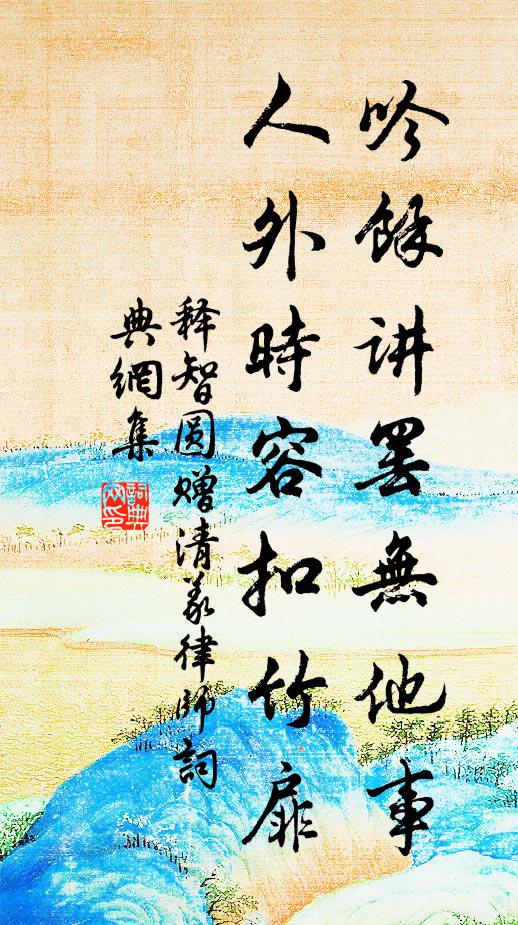 吟餘讲罢無他事
人外時容扣竹扉
释智圆赠清义律师詞
典網集
詞典
网印